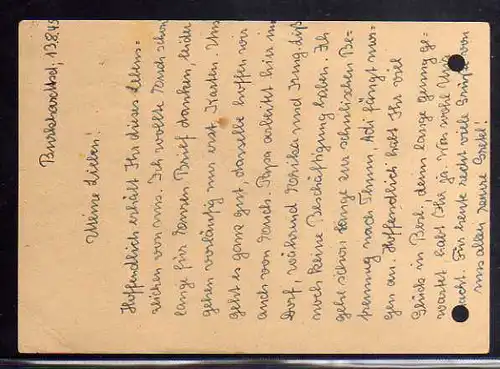 Burkhardtsd., 13.8.45
Meine Lieben!
Hoffendlich erhält Ihr dieses Lebens-
zeichen von uns. Ich wollte Euch schon
lange für Euren Brief danken, leider
gehen vorläufig nur erst Karten. Uns
geht es ganz gut, dasselbe hoffen wir
auch von Euch. Papa arbeitet hier im
Dorf, während und
noch keine Beschäftigung haben. Ich
gehe schon lange zur schulischen Be-
treuung nach Thum. Adi fängt mor-
gen an. Hoffendlich habt Ihr viel
Glück in Berl., denn lange genug ge-
wartet habt Ihr ja. Wer wohl
acht. Für heute recht viele Grüße von
uns allen Eure Gretel!